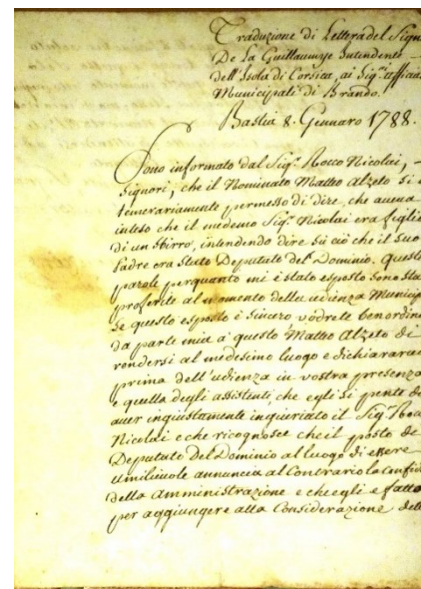 Traduzione di Lettera del Sign
De La Guillaumye Intendente
dell'Isola di Corsica, ai Sig.ri uffizia
Municipali di Brando.
Bastia 8. Gennaro 1788.
Sono informato dal Sig.r Rocco Nicolai,
Signori, che il Nominato Matteo Alzeto si è
temerariamente permesso di dire, che aveva
inteso che il medemo Sig.r Nicolai era figlio
di un Sbirro, intendendo dire sù ciò che il suo
Padre era stato Deputato del Dominio. Queste
parole perquanto mi è stato esposto sono sta
proferite al momento della udienza Municip
se questo esposto è sincero vodrete ben ordin
da parte mia a' questo Matteo Alzeto di
rendersi al medesimo luogo e dichiarara
prima dell'udienza in vostra presenza
e quella degli assistenti, che egli si pente di
aver ingiustamente ingiuriato il Sig.r Roc
Nicolai e che ricognosce che il posto di
Deputato del Dominio al luogo di essere
umiliuole annuncia al Contrario la Confid
della Amministrazione e che egli e fatto
per aggiungere alla Considerazione dell